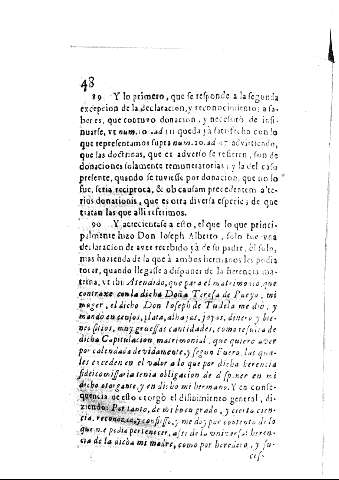 48
89 Y lo primero, que se responde a la segunda
excepcion de la declaracion, y reconocimiento; a sa-
ber es, que contuvo donacion, y necesitò de insi-
nuarse, ve num. 10. ad 111 queda yà satisfecho con lo
que representamos supra num. 20. ad 27 advirtiendo,
que las doctrinas, que ex adverso se refieren, son de
donaciones solamente remuneratorias; y la del caso
presente, quando se tuviesse por donacion, que no lo
fue, seria reciproca, & ob causam precedentem alte-
rius donationis, que es otra diversa especie; de que
tratan las que alli referimos.
90 Y atreviendose a esto, el que lo que princi-
palmente hizo Don Joseph Alberto, solo fue una
declaracion de aver recibido yà de su padre, èl solo,
mas hazienda de la que à ambos hermanos les podia
tocar, quando llegasse a disponer de la herencia ma-
trina, ve ibi Atendido, que para el matrimonio, que
contraxe con la dicha Doña Teresa de Pueyo, mi
muger, el dicho Don Joseph de Tudela me diò, y
mandò en censos, plata, alhajas, joyas, dinero y bie-
nes sitios, muy gruessas cantidades, como resulta de
dicha Capitulacion matrimonial, que quiero aver
por calendada devidamente, y segun Fuero, las qua-
les exceden en el valor a lo que por dicha herencia
fideicomissaria tenia obligacion de disponer en mi
dicho otorgante, y en dicho mi hermano. Y en conse-
quencia de esto otorgò el difinimiento general, di-
ziendo: Por tanto, de mi buen grado, y cierta cien-
cia, reconozco, y confiesso, y me doy por contento de lo
que me podia pertenecer, assi de la universal heren-
cia de la dicha mi madre, como por heredero, y su-
ces-